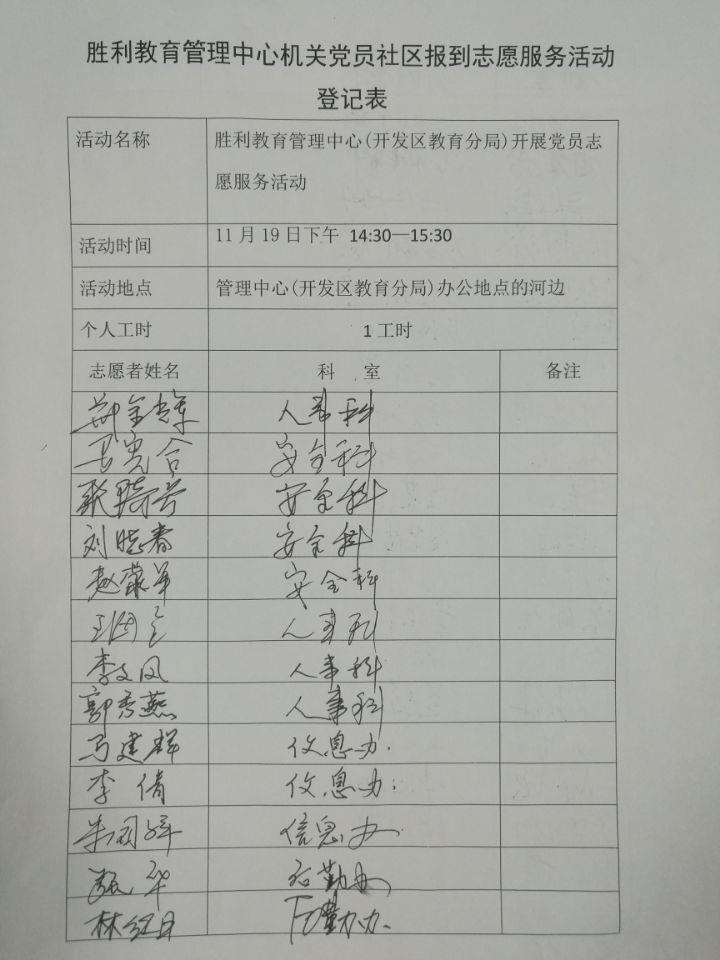 胜利教育管理中心机关党员社区报到志愿服务活动
登记表
活动名称 胜利教育管理中心(开发区教育分局)开展党员志
愿服务活动
活动时间 11月19日下午 14:30—15:30
活动地点 管理中心(开发区教育分局)办公地点的河边
个人工时 1工时
志愿者姓名 科 室 备注
人事科
安全科
安全科
刘晓春 安全科
赵蒙军 安全科
人事科
李文凤 人事科
郭秀燕 人事科
马建群 信息办.
李倩 信息办.
朱国辉 信息办.
甄华 后勤办
林红日 后勤办.